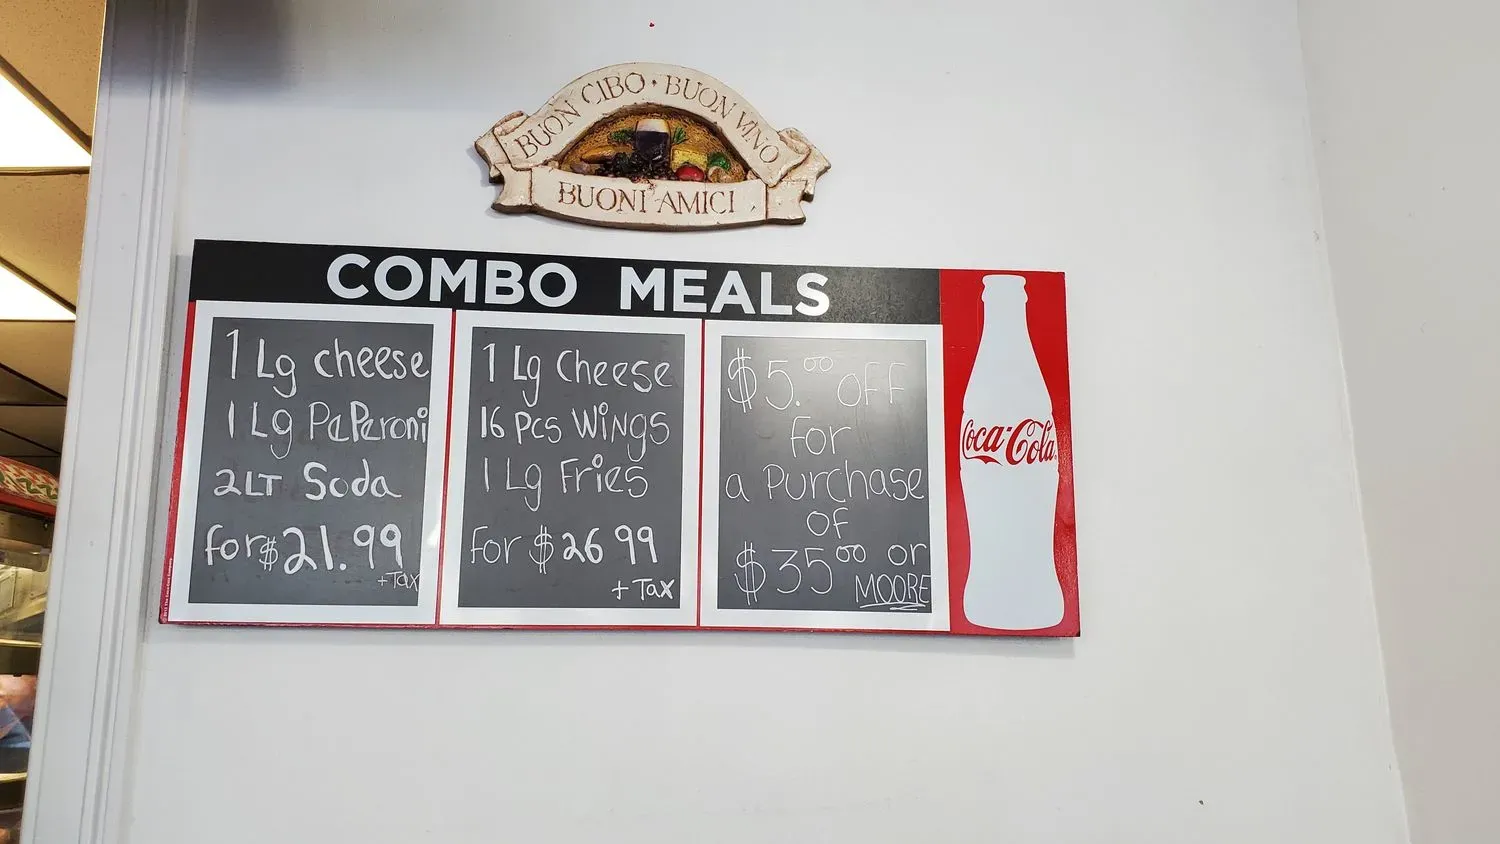 BUON CIBO · BUON VINO
BUONI AMICI
COMBO MEALS
1 Lg cheese
1 Lg PePeroni
2LT Soda
for $21.99
+Tax
1 Lg Cheese
16 Pcs WiNgS
1 Lg FrieS
For $26 99
+ Tax
$5.00 OFF
For
a Purchase
OF
$35 00 or
MOORE
Coca-Cola